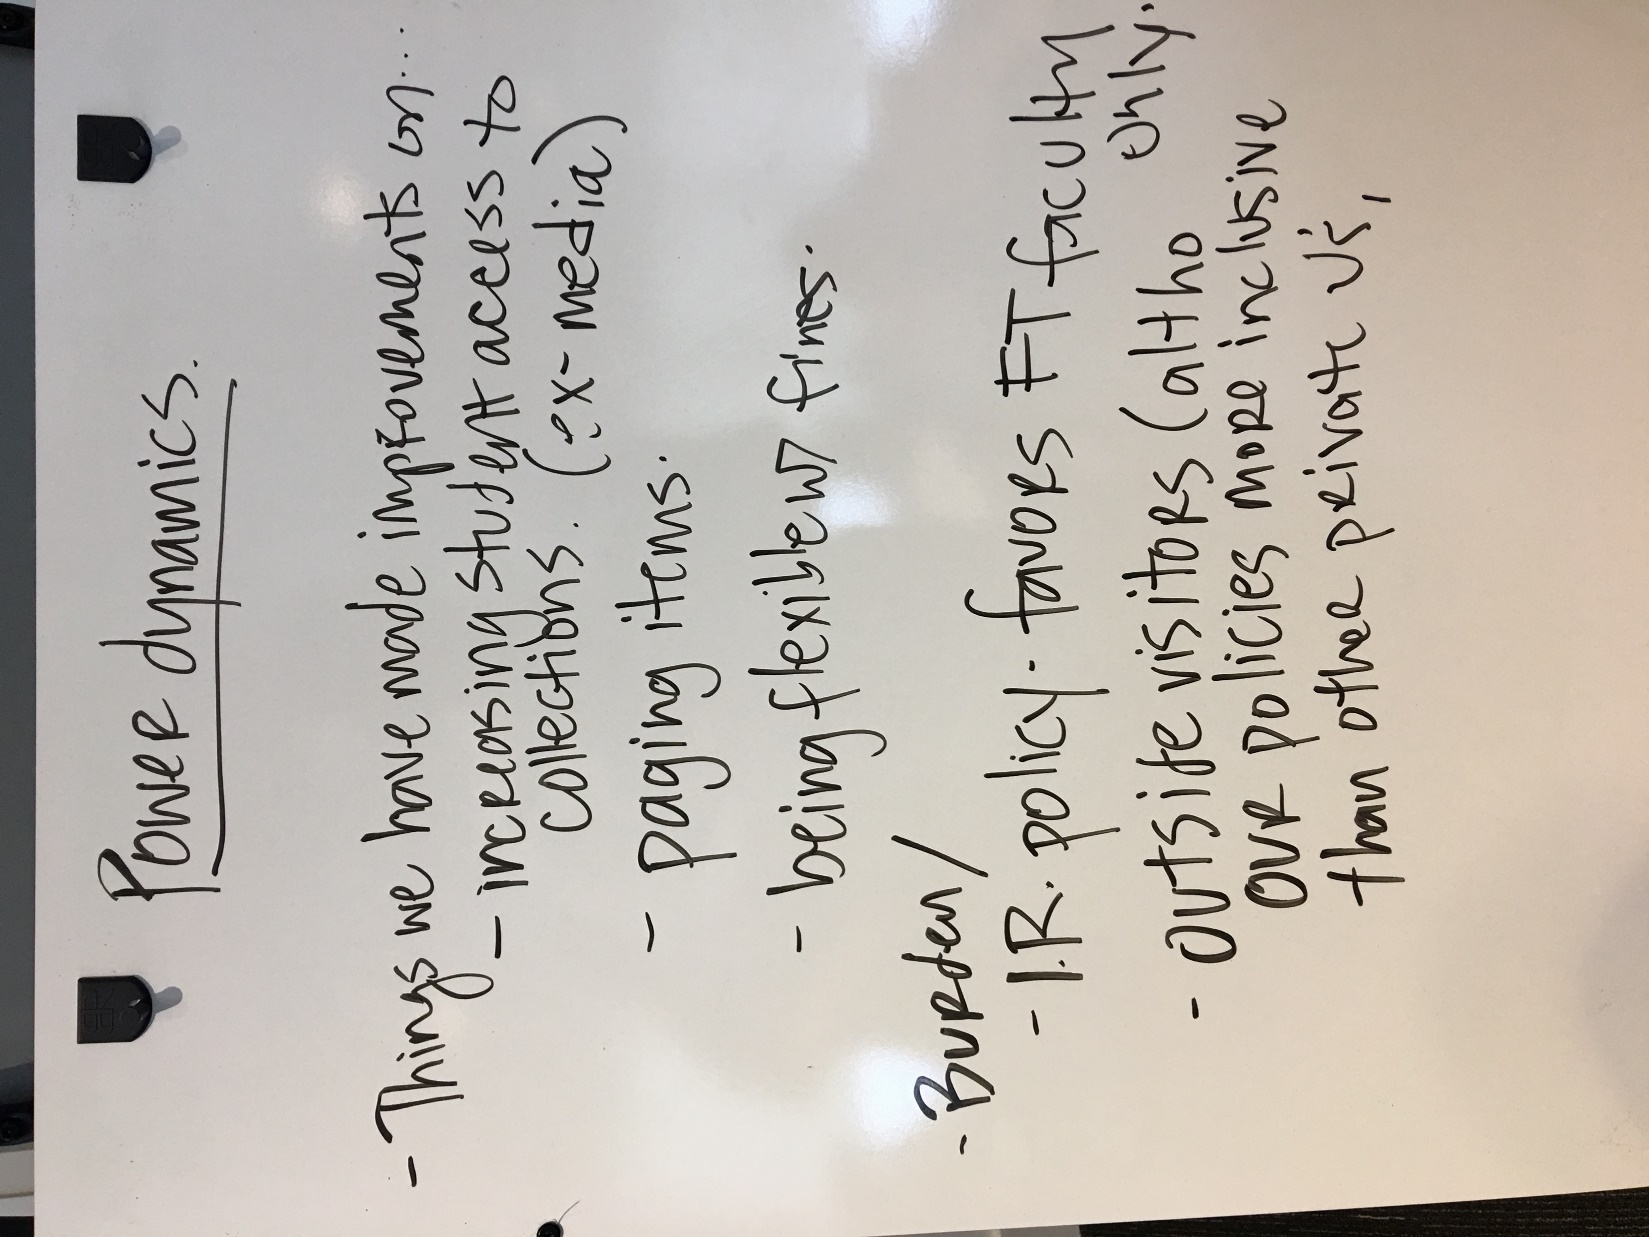 Power dynamics.
- Things we have made improvements on...
- increasing student access to
collections. (ex-media)
- paging items.
- being flexible w/ fines.
- Burden/
- I.R. policy - favors FT faculty
only.
- Outside visitors (altho
our policies more inclusive
than other private U's,